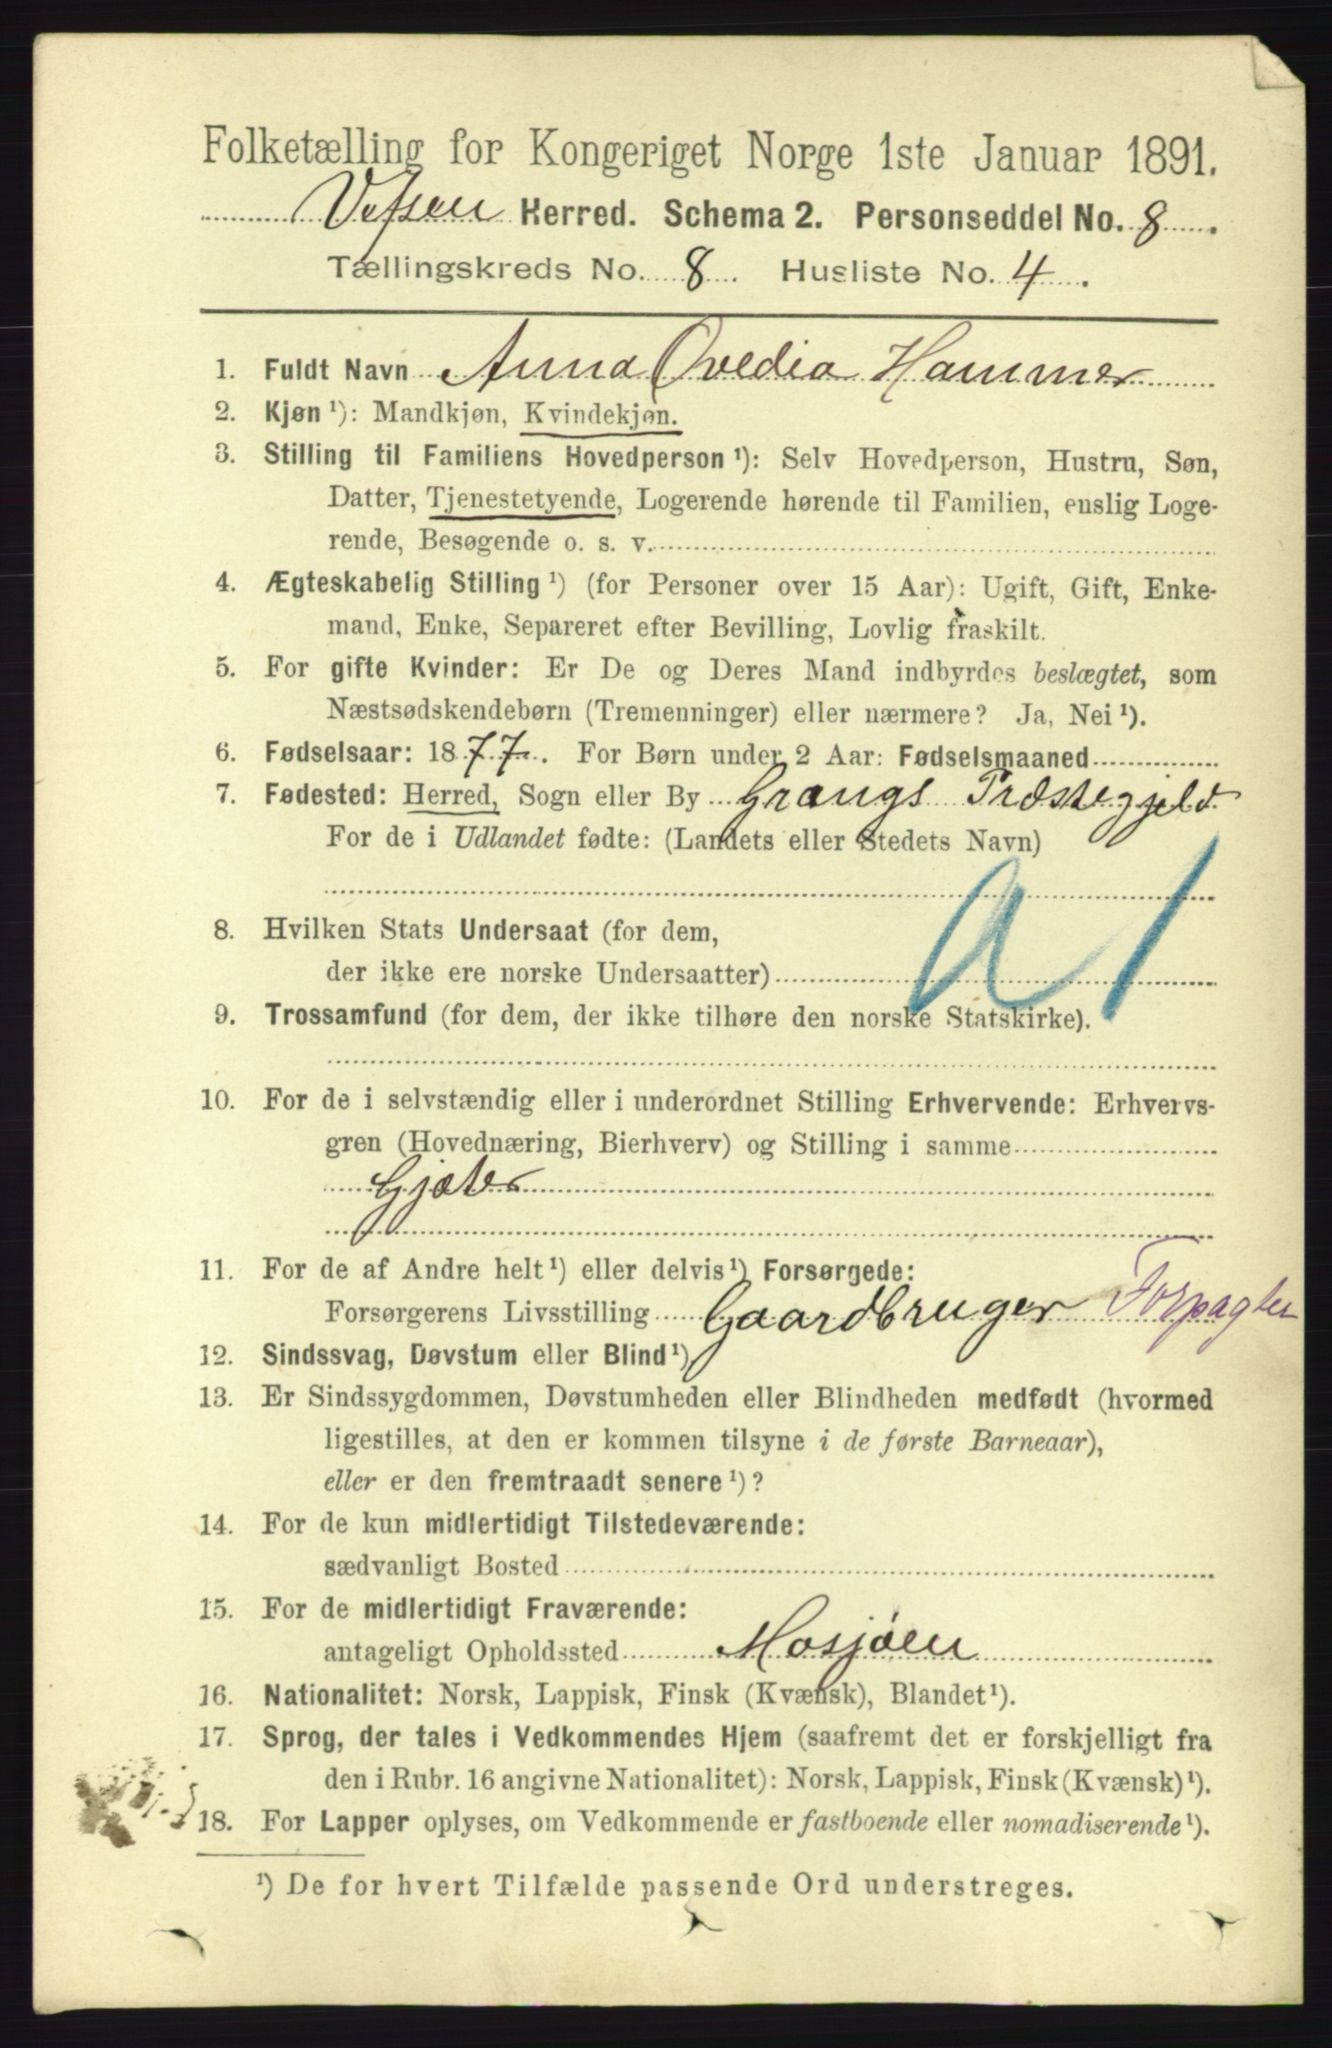 Folketælling for Kongeriget Norge 1ste Januar 1891.
Vefsen Herred. Schema 2. Personseddel No. 8.
Tællingskreds No. 8. Husliste No. 4.
1. Fuldt Navn Anna Ovedia Hammer
2. Kjøn ¹): Mandkjøn, Kvindekjøn.
3. Stilling til Familiens Hovedperson ¹): Selv Hovedperson, Hustru, Søn,
Datter, Tjenestetyende, Logerende hørende til Familien, enslig Loge-
rende, Besøgende o. s. v.
4. Ægteskabelig Stilling ¹) (for Personer over 15 Aar): Ugift, Gift, Enke-
mand, Enke, Separeret efter Bevilling, Lovlig fraskilt.
5. For gifte Kvinder: Er De og Deres Mand indbyrdes beslægtet, som
Næstsødskendebørn (Tremenninger) eller nærmere? Ja, Nei ¹).
6. Fødselsaar: 1877. For Børn under 2 Aar: Fødselsmaaned
7. Fødested: Herred, Sogn eller By Grangs Præstegjeld
For de i Udlandet fødte: (Landets eller Stedets Navn)
a 1
8. Hvilken Stats Undersaat (for dem,
der ikke ere norske Undersaatter)
9. Trossamfund (for dem, der ikke tilhøre den norske Statskirke).
10. For de i selvstændig eller i underordnet Stilling Erhvervende: Erhvervs-
gren (Hovednæring, Bierhverv) og Stilling i samme
Gjæter
11. For de af Andre helt ¹) eller delvis ¹) Forsørgede:
Forsørgerens Livsstilling Gaardbruger Forpagter
12. Sindssvag, Døvstum eller Blind ¹)
13. Er Sindssygdommen, Døvstumheden eller Blindheden medfødt (hvormed
ligestilles, at den er kommen tilsyne i de første Barneaar),
eller er den fremtraadt senere ¹)?
14. For de kun midlertidigt Tilstedeværende:
sædvanligt Bosted
15. For de midlertidigt Fraværende:
antageligt Opholdssted Mosjøen
16. Nationalitet: Norsk, Lappisk, Finsk (Kvænsk), Blandet ¹).
17. Sprog, der tales i Vedkommendes Hjem (saafremt det er forskjelligt fra
den i Rubr. 16 angivne Nationalitet): Norsk, Lappisk, Finsk (Kvænsk) ¹).
18. For Lapper oplyses, om Vedkommende er fastboende eller nomadiserende ¹).
¹) De for hvert Tilfælde passende Ord understreges.